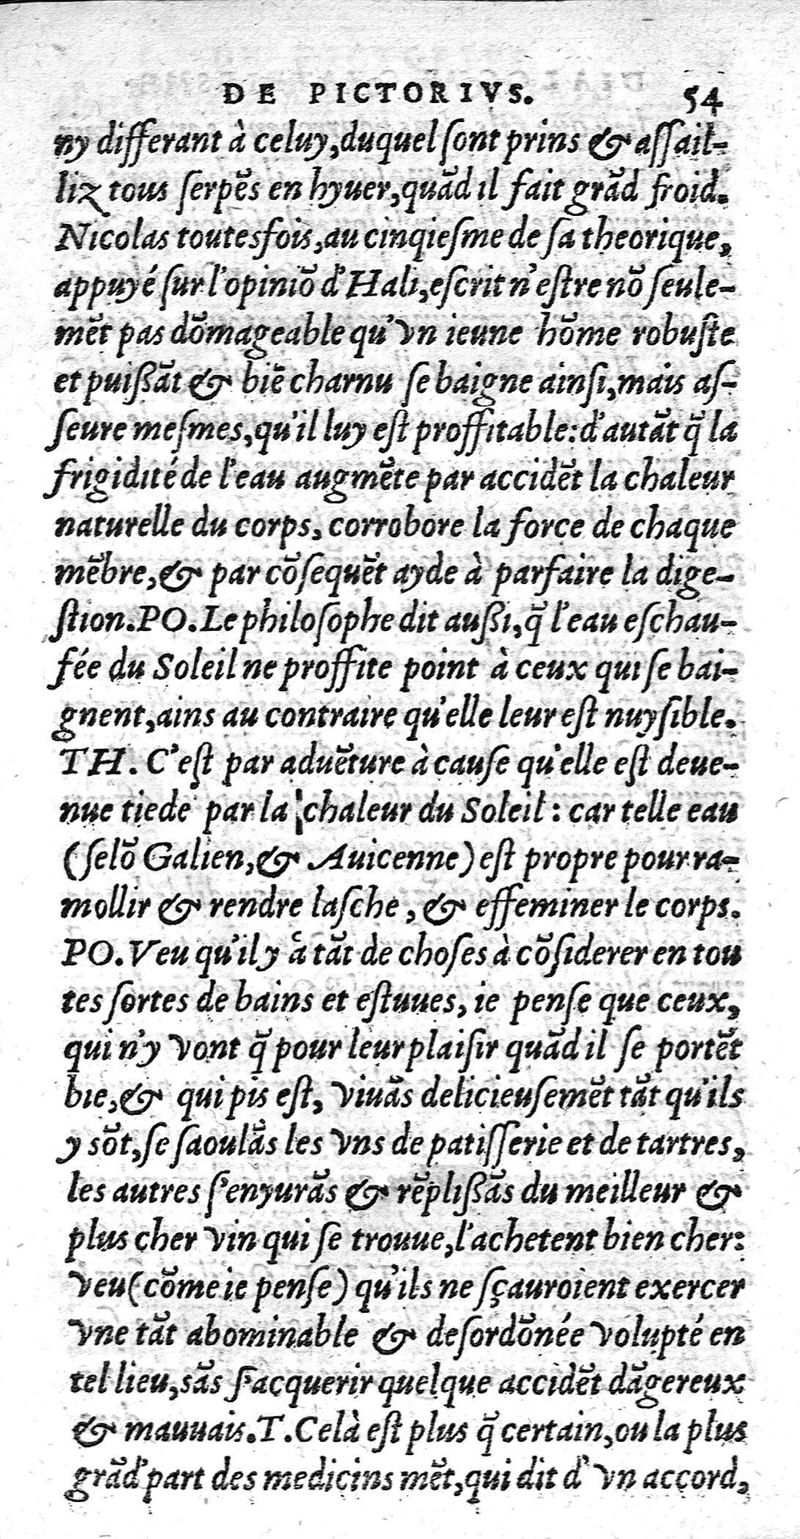 DE PICTORIVS. 54
ny differant à celuy,duquel ſont prins & aſſail-
liz tous ſerpẽs en hyuer,quãd il fait grãd froid.
Nicolas toutesfois,au cinqieſme de ſa theorique,
appuyé ſur l'opiniõ d'Hali,eſcrit n'eſtre nõ ſeule-
mẽt pas dõmageable qu'vn ieune hõme robuſte
et puißãt & biẽ charnu ſe baigne ainſi,mais aſ-
ſeure meſmes,qu'il luy eſt proffitable:d'autãt q̃ la
frigidité de l'eau augmẽte par accidẽt la chaleur
naturelle du corps, corrobore la force de chaque
mẽbre,& par cõſequẽt ayde à parfaire la dige-
ſtion.PO.Le philoſophe dit außi,q̃ l'eau eſchau-
fée du Soleil ne proffite point à ceux qui ſe bai-
gnent,ains au contraire qu'elle leur eſt nuyſible.
TH. C'eſt par aduẽture à cauſe qu'elle eſt deue-
nue tiede par la chaleur du Soleil: car telle eau
(ſelõ Galien,& Auicenne) eſt propre pour ra-
mollir & rendre laſche, & effeminer le corps.
PO.Veu qu'il y à tãt de choſes à cõſiderer en tou
tes ſortes de bains et eſtuues, ie penſe que ceux,
qui n'y vont q̃ pour leur plaiſir quãd il ſe portẽt
biẽ,& qui pis eſt, viuãs delicieuſemẽt tãt qu'ils
y sõt,ſe ſaoulãs les vns de patiſſerie et de tartres,
les autres ſ'enyurãs & rẽplißãs du meilleur &
plus cher vin qui ſe trouue,l'achetent bien cher:
veu(cõme ie penſe) qu'ils ne ſçauroient exercer
vne tãt abominable & deſordõnée volupté en
tel lieu,sãs ſ'acquerir quelque accidẽt dãgereux
& mauuais.T.Celà eſt plus q̃ certain,ou la plus
grãd'part des medicins mẽt,qui dit d'vn accord,